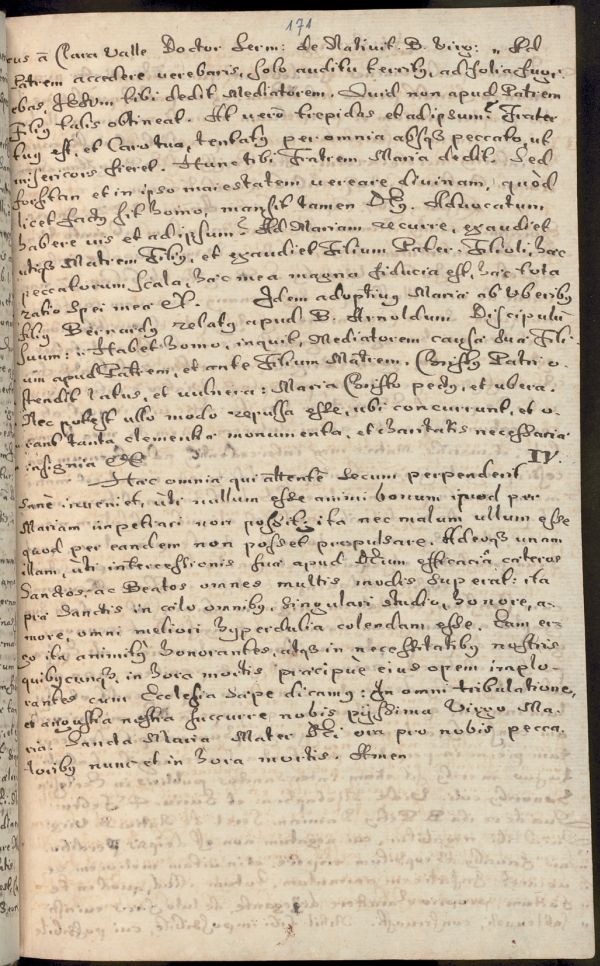 171
cus à Clara Valle Doctor Serm: de Nativit. B. Virg: „ Ad
Patrem accedere verebaris, solo auditu territ9, ad folia fugi
ebas, Jesum tibi dedit Mediatorem. Quid non apud Patrem
Fili9 talis obtineat. At verò trepidas et ad ipsum? Frater
tu9 est, et Caro tua, tentat9 per omnia absq3 peccato, ut
misericors fieret. Hunc tibi Fratrem Maria dedit. Sed
forsitan et in ipso maiestatem vereare divinam, quòd
licet fact9 sit homo, mansit tamen D9. Advocatum
habere vis et ad ipsum? Ad Mariam recurre, exaudiet
utiq3 Matrem Fili9, et exaudiet Filium Pater. Filioli, haec
peccatorum scala, haec mea magna fiducia est, haec tota
ratio spei mea &c. Idem adoptiv9 Mariae ab Uberib9
fili9 Bernard9 relat9 apud B. Arnoldum Discipulū
suum: Habet homo, inquit, Mediatorem causae suae Fili-
um apud Patrem, et ante Filium Matrem. Christ9 Patri o-
stendit latus, et vulnera: Maria Christo pect9, et ubera.
Nec potest ullo modo repulsa esse, ubi concurrunt, et o-
rant tanta clementiae monumenta, et charitatis necessaria
insignia &c. IV.
Haec omnia qui attentè secum perpenderit
sanè inveniet, uti nullum esse animi bonum quod per
Mariam impetrari non possit: ita nec malum ullum esse
quod per eandem non posset propulsare. Adeoq3 unam
illam, uti intercessionis suae apud Deum efficaciâ caeteros
Sanctos, ac Beatos omnes multis modis superat: ita
prae Sanctis in caelo omnib9, singulari studio, honore, a-
more, omni meliori hyperdulia colendam esse. Eam er-
go ita animit9 honorantes, atq3 in necessitatib9 nostris
quibuscunq3, in hora mortis praecipuè eius opem implo-
rantes cum Ecclesia saepe dicam9: In omni tribulatione,
et angustia nostra succurre nobis pijssima Virgo Ma-
ria. Sancta Maria Mater Dei ora pro nobis pecca-
torib9 nunc et in hora mortis. Amen